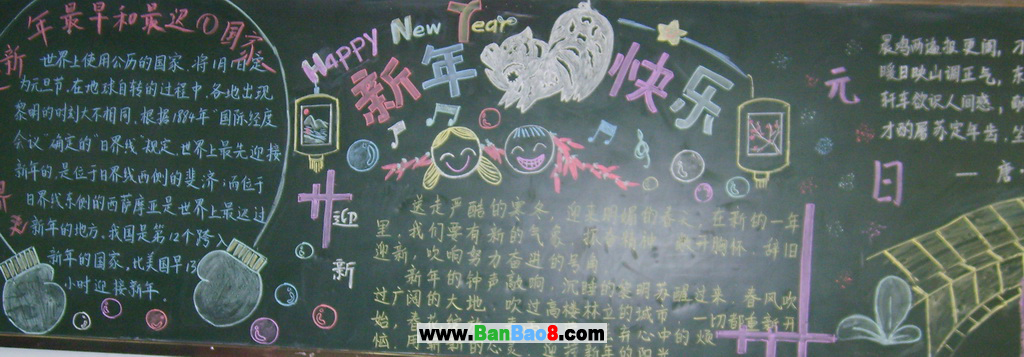 年最早和最迟的国家
新
世界上使用公历的国家，将1月1日定
为元旦节，在地球自转的过程中，各地出现
黎明的时刻大不相同，根据1884年"国际经度
会议"确定的"日界线"规定，世界上最先迎接
新年的，是位于日界线西侧的斐济；而位于
日界线东侧的西萨摩亚是世界上最迟过
新年的地方，我国是第12个跨入
新年的国家，比美国早13
小时迎接新年。
Happy New Year
新年快乐
迎新
送走严酷的寒冬，迎来明媚的春天，在新的一年
里，我们要有新的气象，振奋精神，敞开胸怀，辞旧
迎新，吹响努力奋进的号角
新年的钟声敲响，沉睡的黎明苏醒过来，春风吹
过广阔的大地，吹过高楼林立的城市，一切都重新开
始，
恼，用新的心灵，迎接新年的阳光
元日
晨鸡两遍报更阑，
暖日映山调正气，东
轩车欲识人间感，献
才酌屠苏定年齿，坐
——唐·
www.BanBao8.com